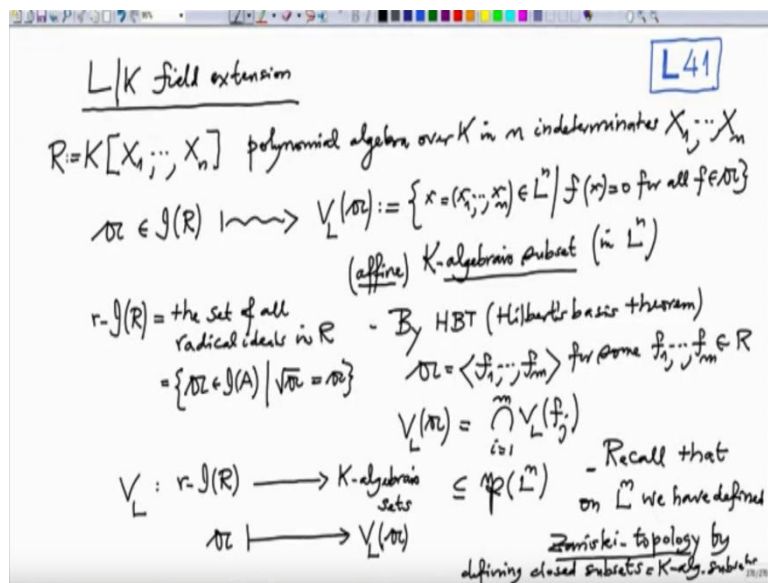 L|K field extension
L41
R:=K[X₁,…,Xₙ] polynomial algebra over K in n indeterminates X₁,…,Xₙ
𝔞 ∈ 𝓘(R) ⟼ V_L(𝔞) := {x=(x₁,…,xₙ) ∈ Lⁿ | f(x)=0 for all f∈𝔞}
(affine) K-algebraic subset (in Lⁿ)
r-𝓘(R) = the set of all
radical ideals in R
= {𝔞∈𝓘(A) | √𝔞 = 𝔞}
- By HBT (Hilbert's basis theorem)
𝔞 = <f₁,…,fₘ> for some f₁,…,fₘ ∈ R
V_L(𝔞) = ⋂ᵢ₌₁ᵐ V_L(fⱼ)
V_L : r-𝓘(R) ⟶ K-algebraic sets ⊆ 𝔓(Lⁿ)
𝔞 ⟼ V_L(𝔞)
- Recall that
on Lⁿ we have defined
Zariski-topology by
defining closed subsets = K-alg. subsets